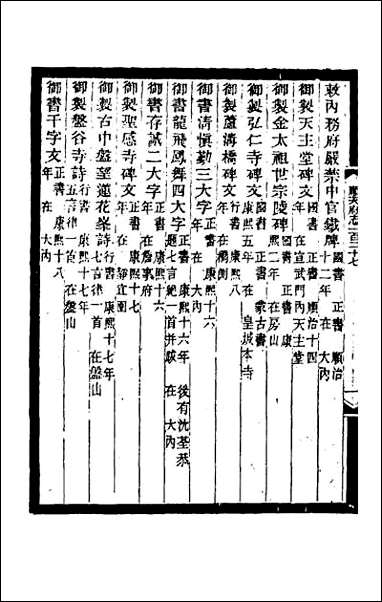 敕內務府嚴禁中官鐵牌 國書 正書 順治十二年 在 大內
御製天主堂碑文 國書 正書 順治十四年 在宣武門內天主堂
御製金太祖世宗陵碑文 國書 正書 康熙二年 在房山
御製弘仁寺碑文 國書 正書 蒙古書 康熙五年 在 皇城本寺
御製蘆溝橋碑文 康熙八年 在橋側
御書清慎勤三大字 正書 康熙十六年 在大內
御書龍飛鳳舞四大字 正書 康熙十六年 後有沈荃恭題七言絕一首并跋 在 大內
御書存誠二大字 正書 康熙十六年 在詹事府
御製聖感寺碑文 正書 康熙十七年 在靜宜園
御製古中盤望蓮花峯詩 行書 康熙十七年 七言律一首 在盤山
御製盤谷寺詩 行書 康熙十七年 五言律一首 在盤山
御書千字文 正書 康熙十八年 在 大內